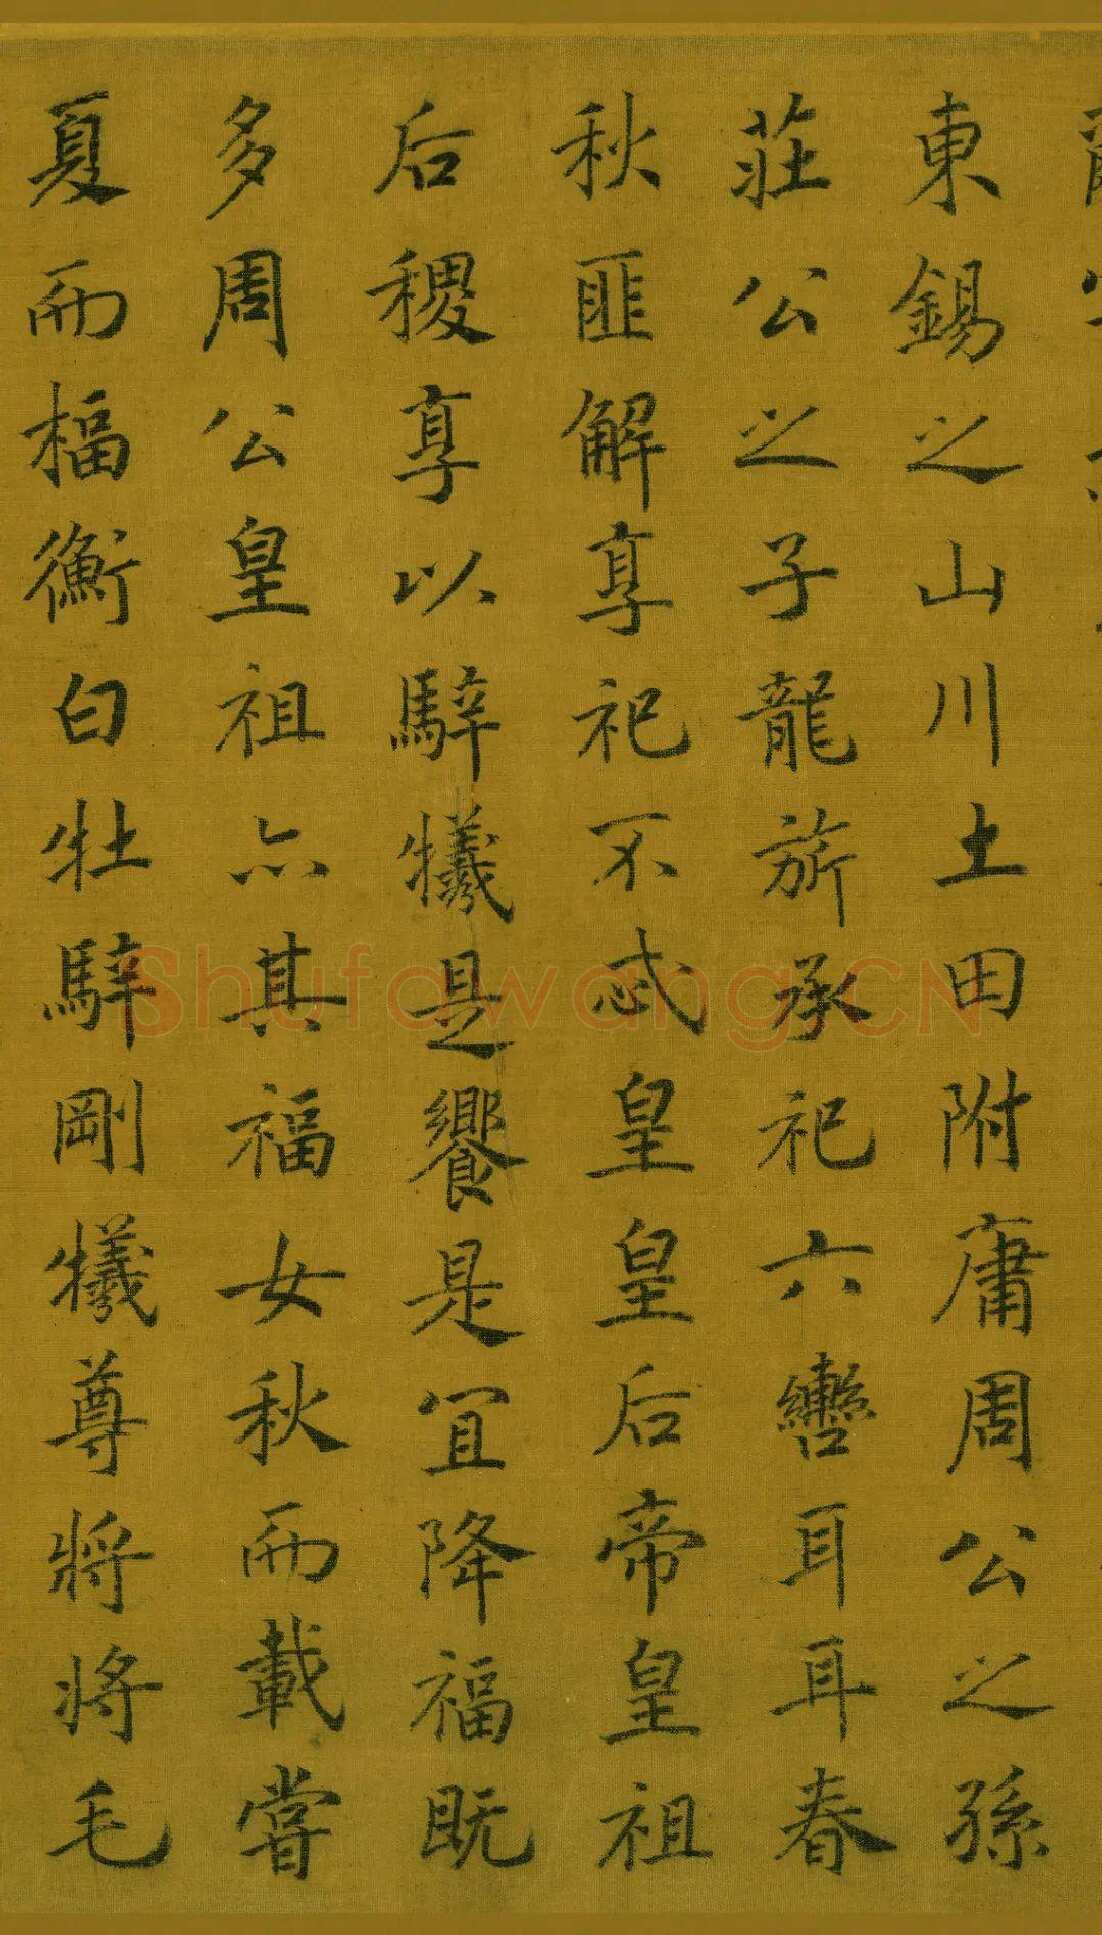 東錫之山川土田附庸周公之孫
莊公之子龍旂承祀六轡耳耳春
秋匪解享祀不忒皇皇后帝皇祖
后稷享以騂犧是饗是宜降福既
多周公皇祖亦其福女秋而載嘗
夏而楅衡白牡騂剛犧尊將將毛
Shufawang.CN